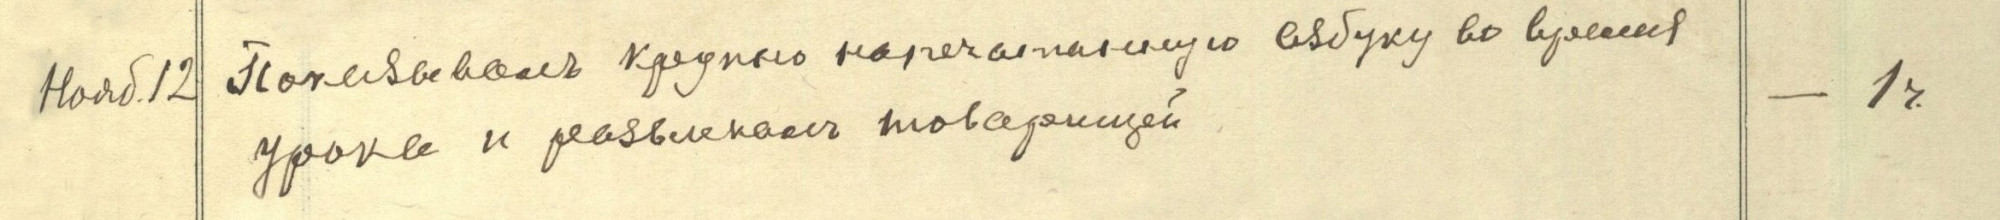 Нояб. 12 Показывалъ крупно напечатанную азбуку во время — 1 ч.
урока и развлекалъ товарищей